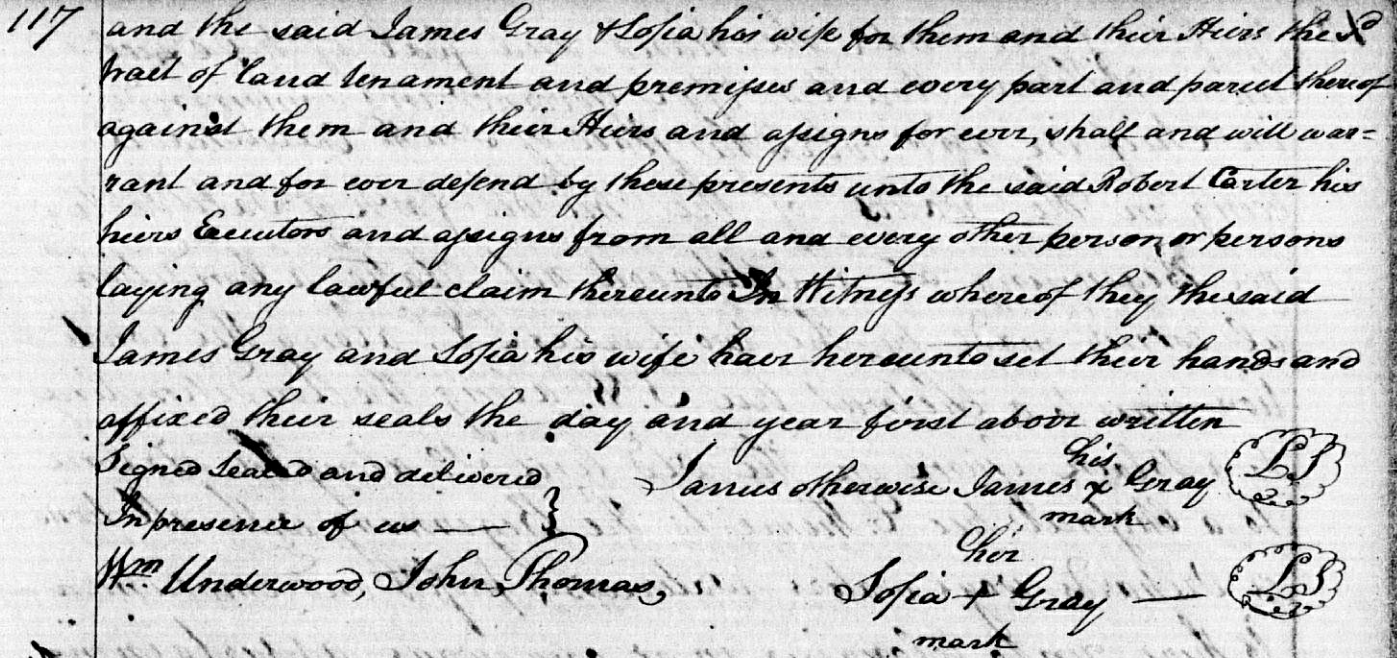 117
and the said James Gray & Sofia his wife for them and their Heirs the sd
tract of land tenament and premises and every part and parcel thereof
against them and their Heirs and assigns for ever, shall and will war=
rant and for ever defend by these presents unto the said Robert Carter his
heirs Executors and assigns from all and every other person or persons
laying any lawful claim thereunto In Witness whereof they the said
James Gray and Sofia his wife have hereunto set their hands and
affixed their seals the day and year first above written
Signed Sealed and delivered
In presence of us — }
Wm Underwood, John Thomas,
his
Janus otherwise James x Gray LS
mark
her
Sofia + Gray — LS
mark